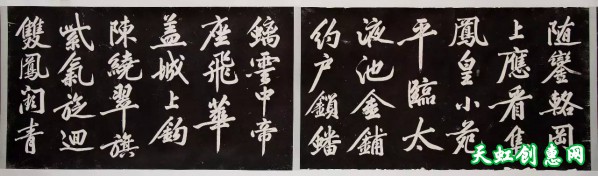 随鑾輅岡
上應看集
鳳皇小苑
平臨太
液池金鋪
約户鎖蟠
螭雲中帝
座飛華
盖城上鈎
陳繞翠旗
紫氣旋迴
雙鳳闕青
天虹创意网